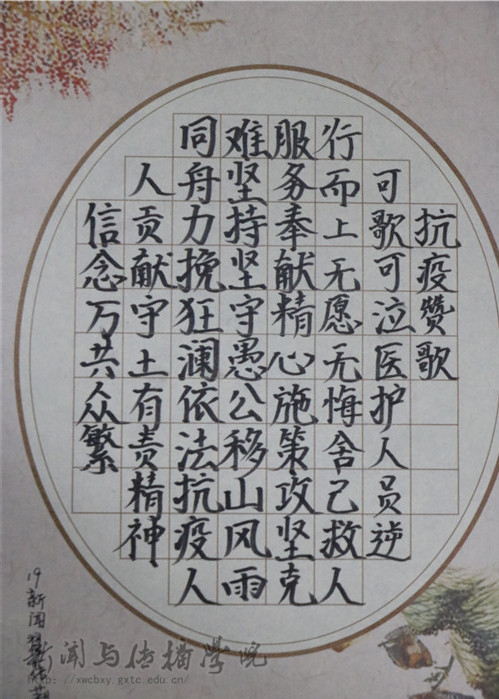 抗疫赞歌
可歌可泣医护人员逆
行而上无愿无悔舍己救人
服务奉献精心施策攻坚克
难坚持坚守愚公移山风雨
同舟力挽狂澜依法抗疫人
人贡献守土有责精神
信念万共众繁
19新闻
新闻与传播学院
http://xwcbxy.gxtc.edu.cn/